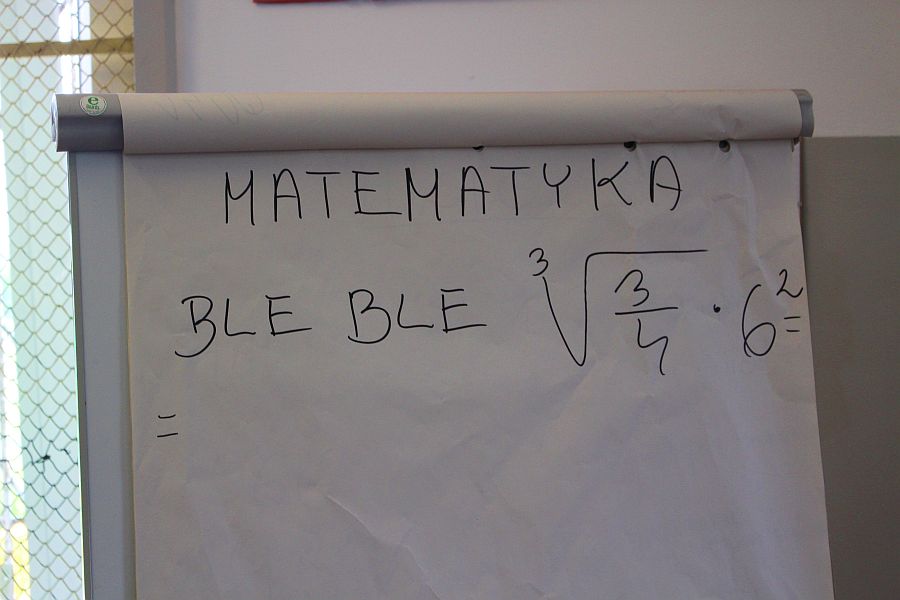 MATEMATYKA
BLE BLE ∛(3/4) · 6² =
=